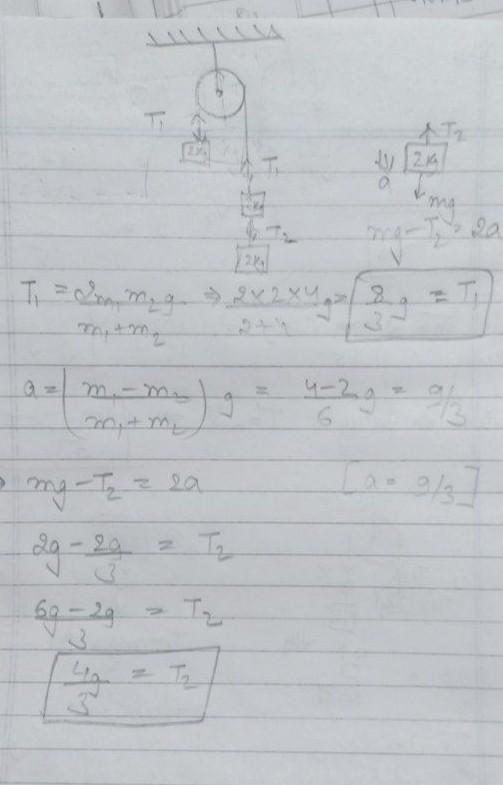 T₁
2Kg
T₁
T₂
2Kg
T₂
2Kg
a
mg
mg - T₂ = 2a
T₁ = 2m₁m₂g / m₁+m₂ ⇒ 2×2×4 / 2+4 g = 8/3 g = T₁
a = (m₁ - m₂ / m₁ + m₂) g = 4-2 / 6 g = g/3
mg - T₂ = 2a [a = g/3]
2g - 2g/3 = T₂
6g - 2g / 3 = T₂
4g/3 = T₂